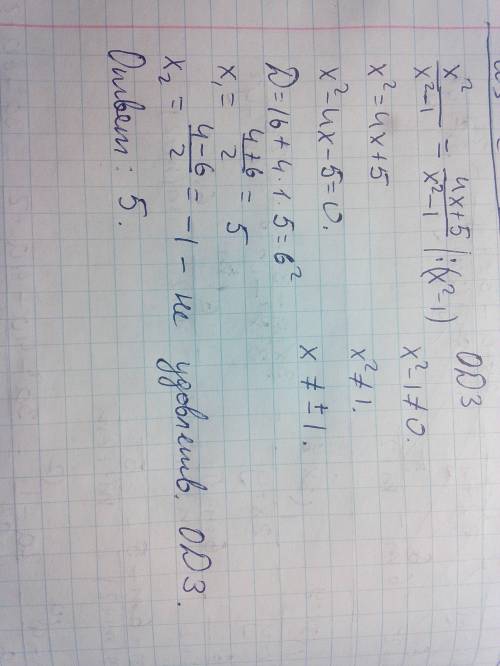 x²/(x²-1) = (4x+5)/(x²-1) |:(x²-1) ОДЗ
x² = 4x+5 x²-1≠0.
x²-4x-5=0. x²≠1.
D=16+4·1·5=6² x ≠ ±1.
x₁ = (4+6)/2 = 5
x₂ = (4-6)/2 = -1 - не удовлетв. ОДЗ.
Ответ: 5.